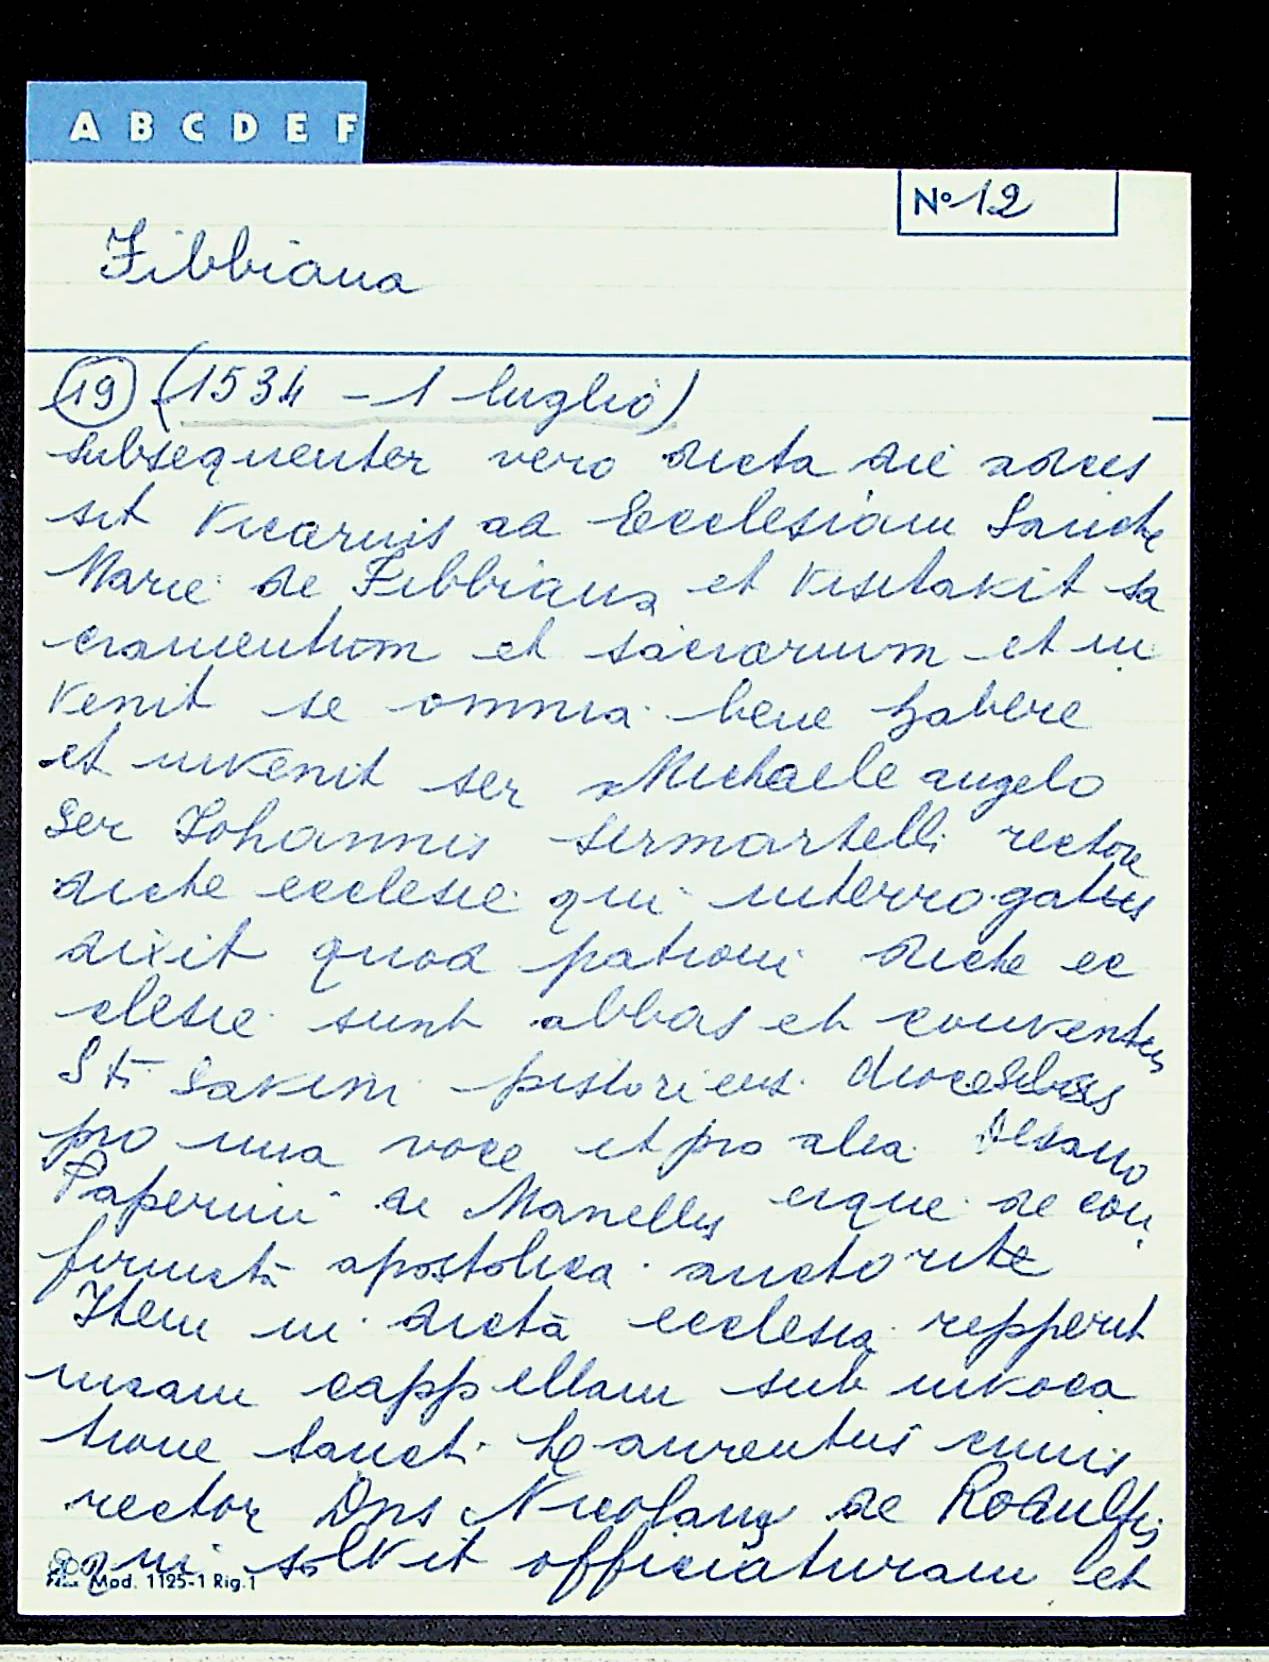 A B C D E F
Nº 12
Fibbiana
19 (1534 - 1 luglio)
subsequenter vero dicta die acces
sit Vicarius ad Ecclesiam Sancte
Marie de Fibbiana et visitavit sa
cramentum et sacrarium et in
venit se omnia bene habere
et invenit ser Michaele angelo
Ser Johannis sermartelli rectore
dicte ecclesie qui interrogatus
dixit quod patroni dicte ec
clesie sunt abbas et conventus
Sti Savini pistoriens.
pro una voce et pro alia
Paperini de Manellis de con
firmat apostolica auctorite
Item in dicta ecclesia repperit
unam cappellam sub invoca
tione sancti Laurentii cuius
rector Dns Nicolaus de Rodulfis
qui solvit officiaturam et
Mod. 1125-1 Rig.1